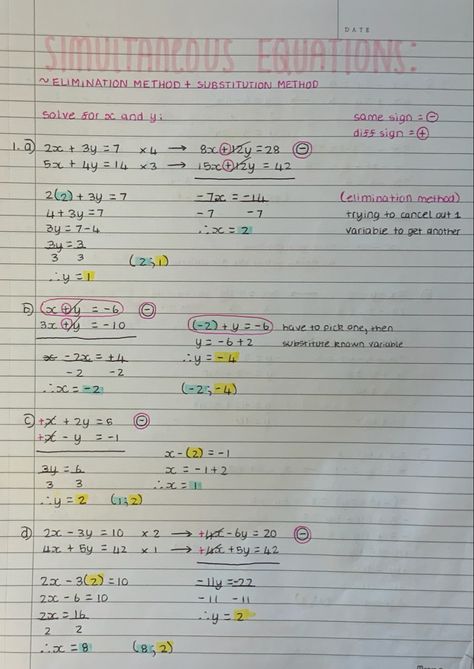 DATE
SIMULTANEOUS EQUATIONS:
~ELIMINATION METHOD + SUBSTITUTION METHOD
solve for x and y:
same sign = ⊖
diff sign = ⊕
1. a) 2x + 3y = 7 ×4 → 8x + 12y = 28 ⊖
5x + 4y = 14 ×3 → 15x + 12y = 42
2(2) + 3y = 7
4 + 3y = 7
3y = 7-4
3y = 3
3 3
∴y = 1
-7x = -14
-7 -7
∴x = 2
(2;1)
(elimination method)
trying to cancel out 1
variable to get another
b) x + y = -6 ⊖
3x + y = -10
-2x = +4
-2 -2
∴x = -2
(-2) + y = -6
y = -6+2
∴y = -4
(-2;-4)
have to pick one, then
substitute known variable
c) +x + 2y = 5 ⊖
+x - y = -1
3y = 6
3 3
∴y = 2 (1;2)
x-(2) = -1
x = -1+2
∴x = 1
d) 2x - 3y = 10 ×2 → +4x - 6y = 20 ⊖
4x + 5y = 42 ×1 → +4x + 5y = 42
2x - 3(2) = 10
2x - 6 = 10
2x = 16
2 2
∴x = 8
-11y = -22
-11 -11
∴y = 2
(8;2)